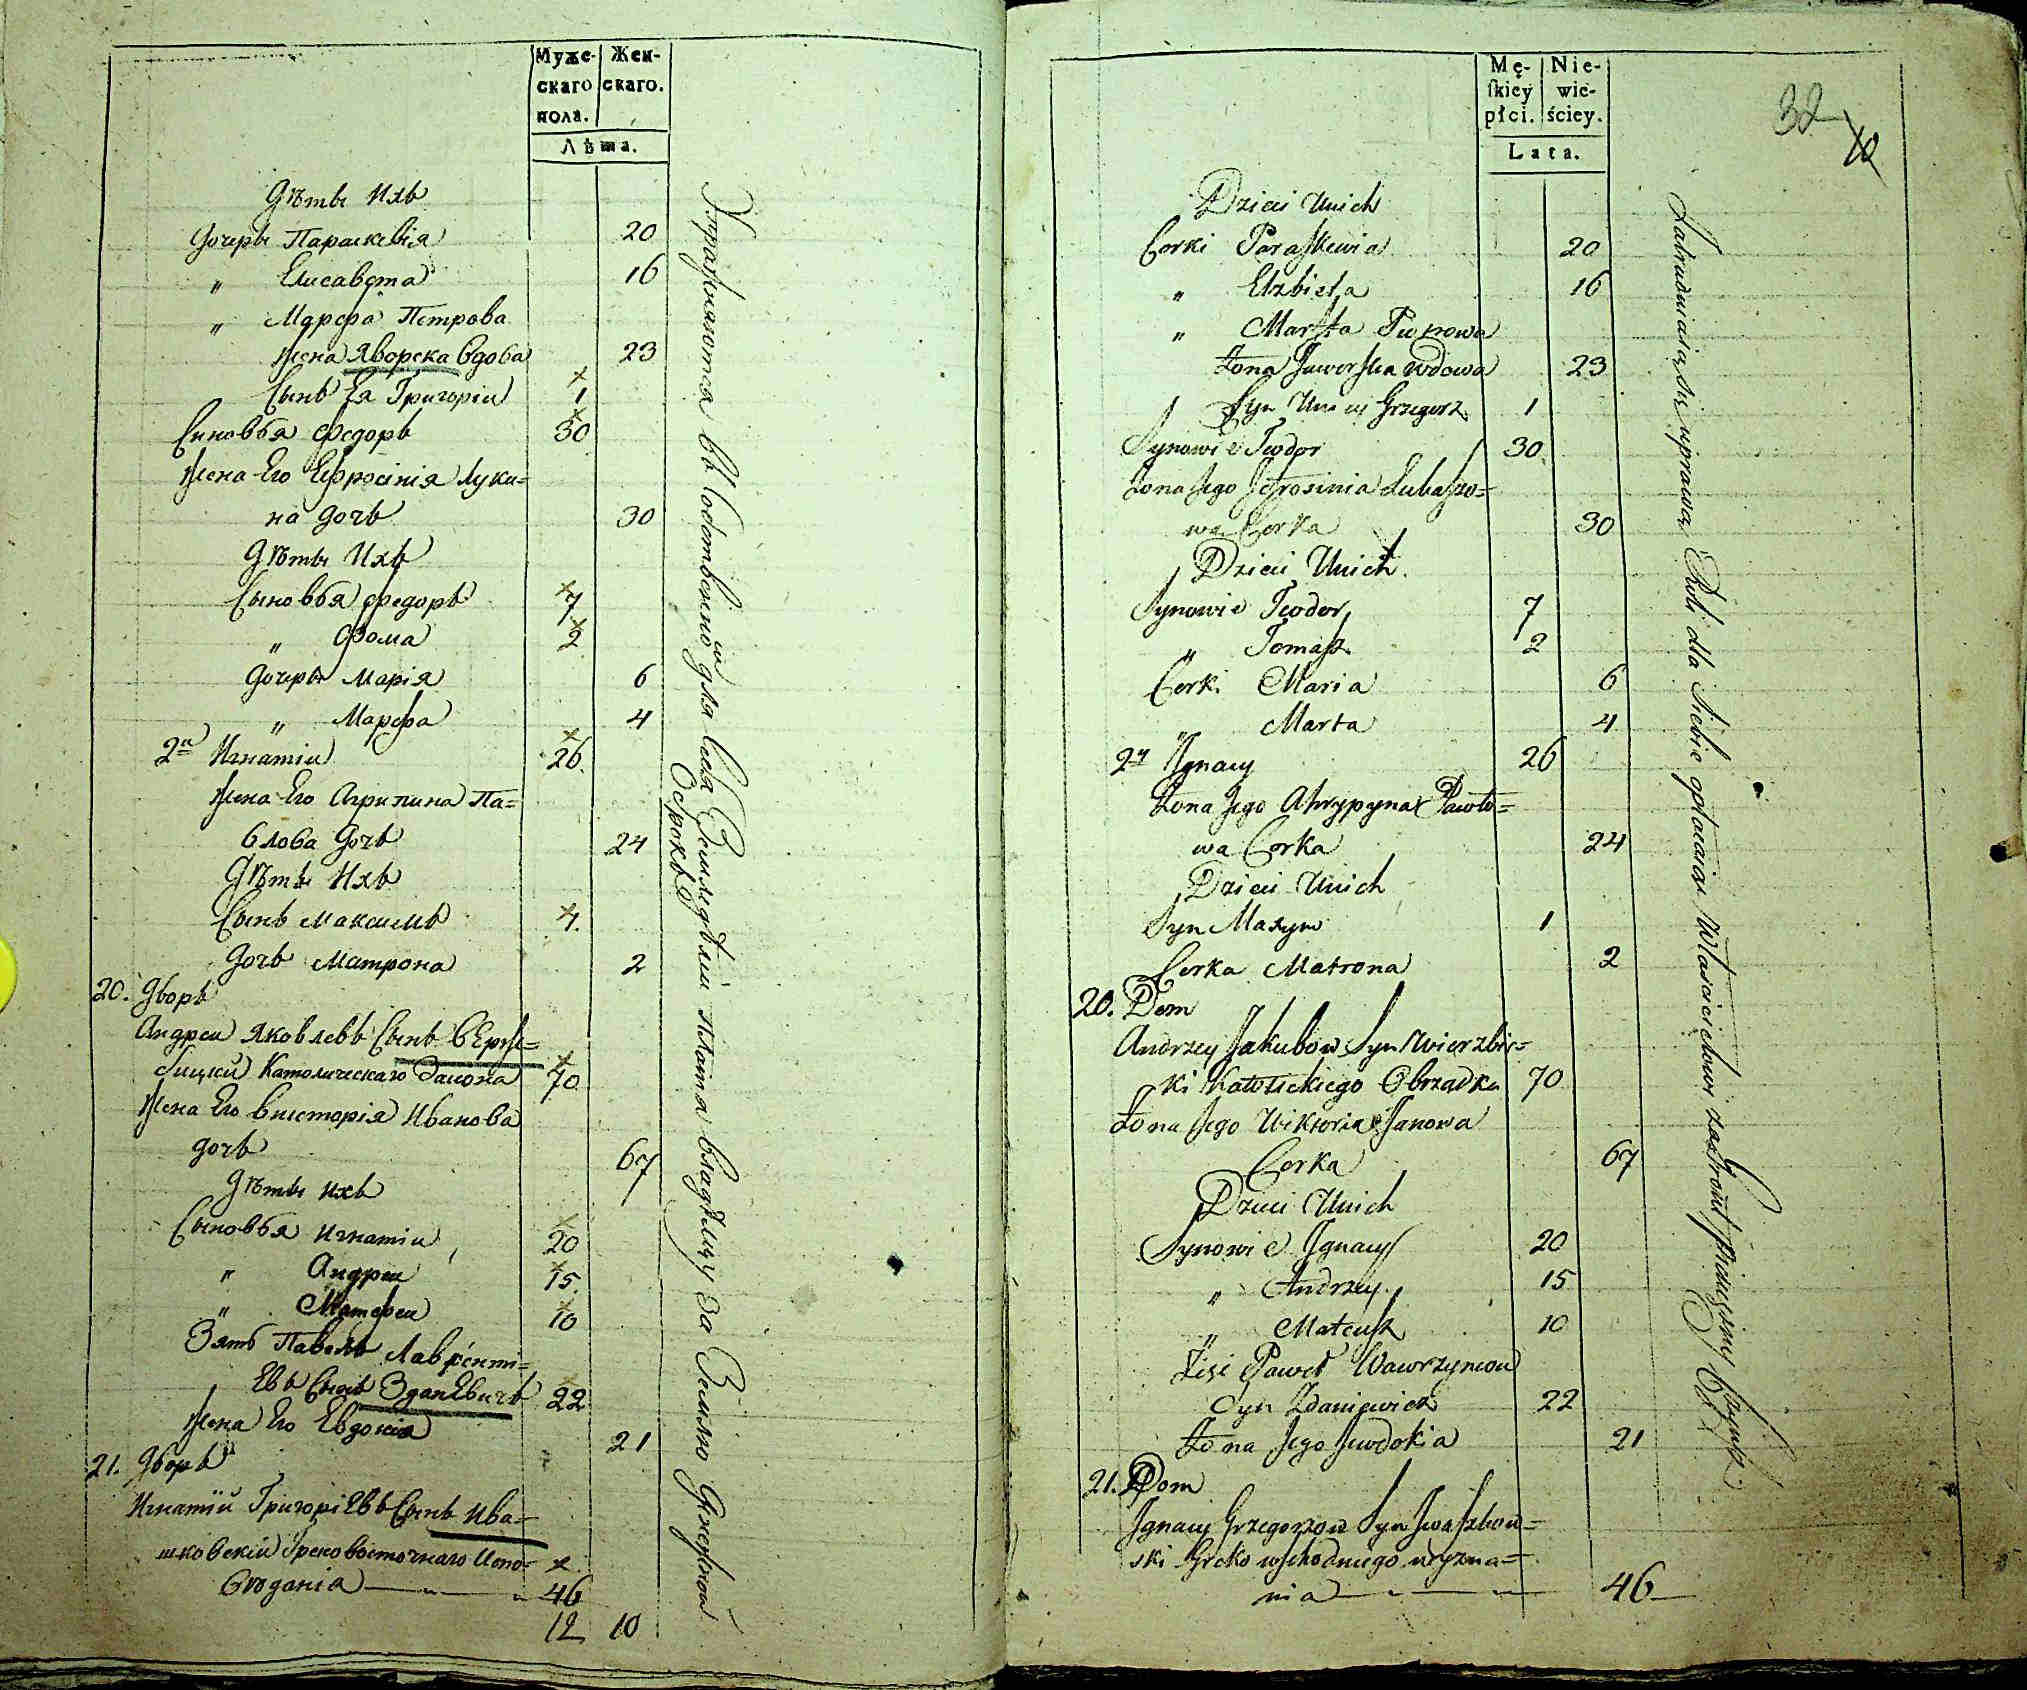 Муже- Жен-
скаго скаго.
пола.
Лѣта.
Дѣти Ихъ
Дочери Параскевія 20
„ Елисавета 16
„ Марѳа Петрова
жена Яворска вдова 23
Сынъ Ея Григорій 1
Синовья Федоръ 30
Жена Его Ефросінія Луки=
на дочь 30
Дѣти Ихъ
Сыновья Федоръ 7
„ Фома 2
Дочери Марія 6
„ Марѳа 4
2й Игнатій 26
Жена Его Агрипина Па=
влова Дочь 24
Дѣти Ихъ
Сынъ Максимъ 1.
Дочь Матрона 2
20. Дворъ
Андрей Яковлевъ Сынъ Верж=
бицкій Католическаго Закона 70
Жена Его Викторія Иванова
дочь 67
Дѣти ихъ
Сыновья Игнатій 20
„ Андрей 15
„ Матфей 10
Зять Павелъ Лаврѣнті=
Евъ Сынъ ЗданЕвичъ 22
Жена Его Евдокія 21
21. Дворъ
Игнатій ГригоріЕвъ Сынъ Ива=
шковскій Грековосточнаго Испо=
вѣданія 46
12 10
Упражняются въ собственной для себя Земледѣліи платя владѣлцу за Землю денежной
Оброкъ
Mę- Nie-
skiey wie-
płci. ściey.
Lata.
32
10
Dzieci Unich
Corki Paraskewia 20
„ Elzbieta 16
„ Marta Piotrowa
Żona Jaworska wdowa 23
Syn Uniey Grzegorz 1
Synowie Teodor 30
Żona Jego Jefrosinia Łukaszo=
wa Corka 30
Dzieci Unich.
Synowie Teodor 7
„ Tomasz 2
Corki Maria 6
„ Marta 4
2y Ignacy 26
Żona Jego Ahrypyna Pawło=
wa Corka 24
Dzieci Unich
Syn Maxym 1
Corka Matrona 2
20. Dom
Andrzey Jakubow Syn Wierzbic=
ki Katolickiego Obrządku 70
Żona Jego Wiktoria Janowa
Corka 67
Dzieci Unich
Synowie Ignacy 20
„ Andrzey 15
„ Mateusz 10
Zięć Paweł Wawrzyncow
Syn Zdaniewicz 22
Żona Jego Jewdokia 21
21. Dom
Ignacy Grzegorzow Syn Iwaszkow=
ski Greko wschodniego wyzna=
nia 46
Zatrudniaią się uprawą Roli dla Siebie opłacaiąc Właścicielowi za Grunt pieniężny Czynsz